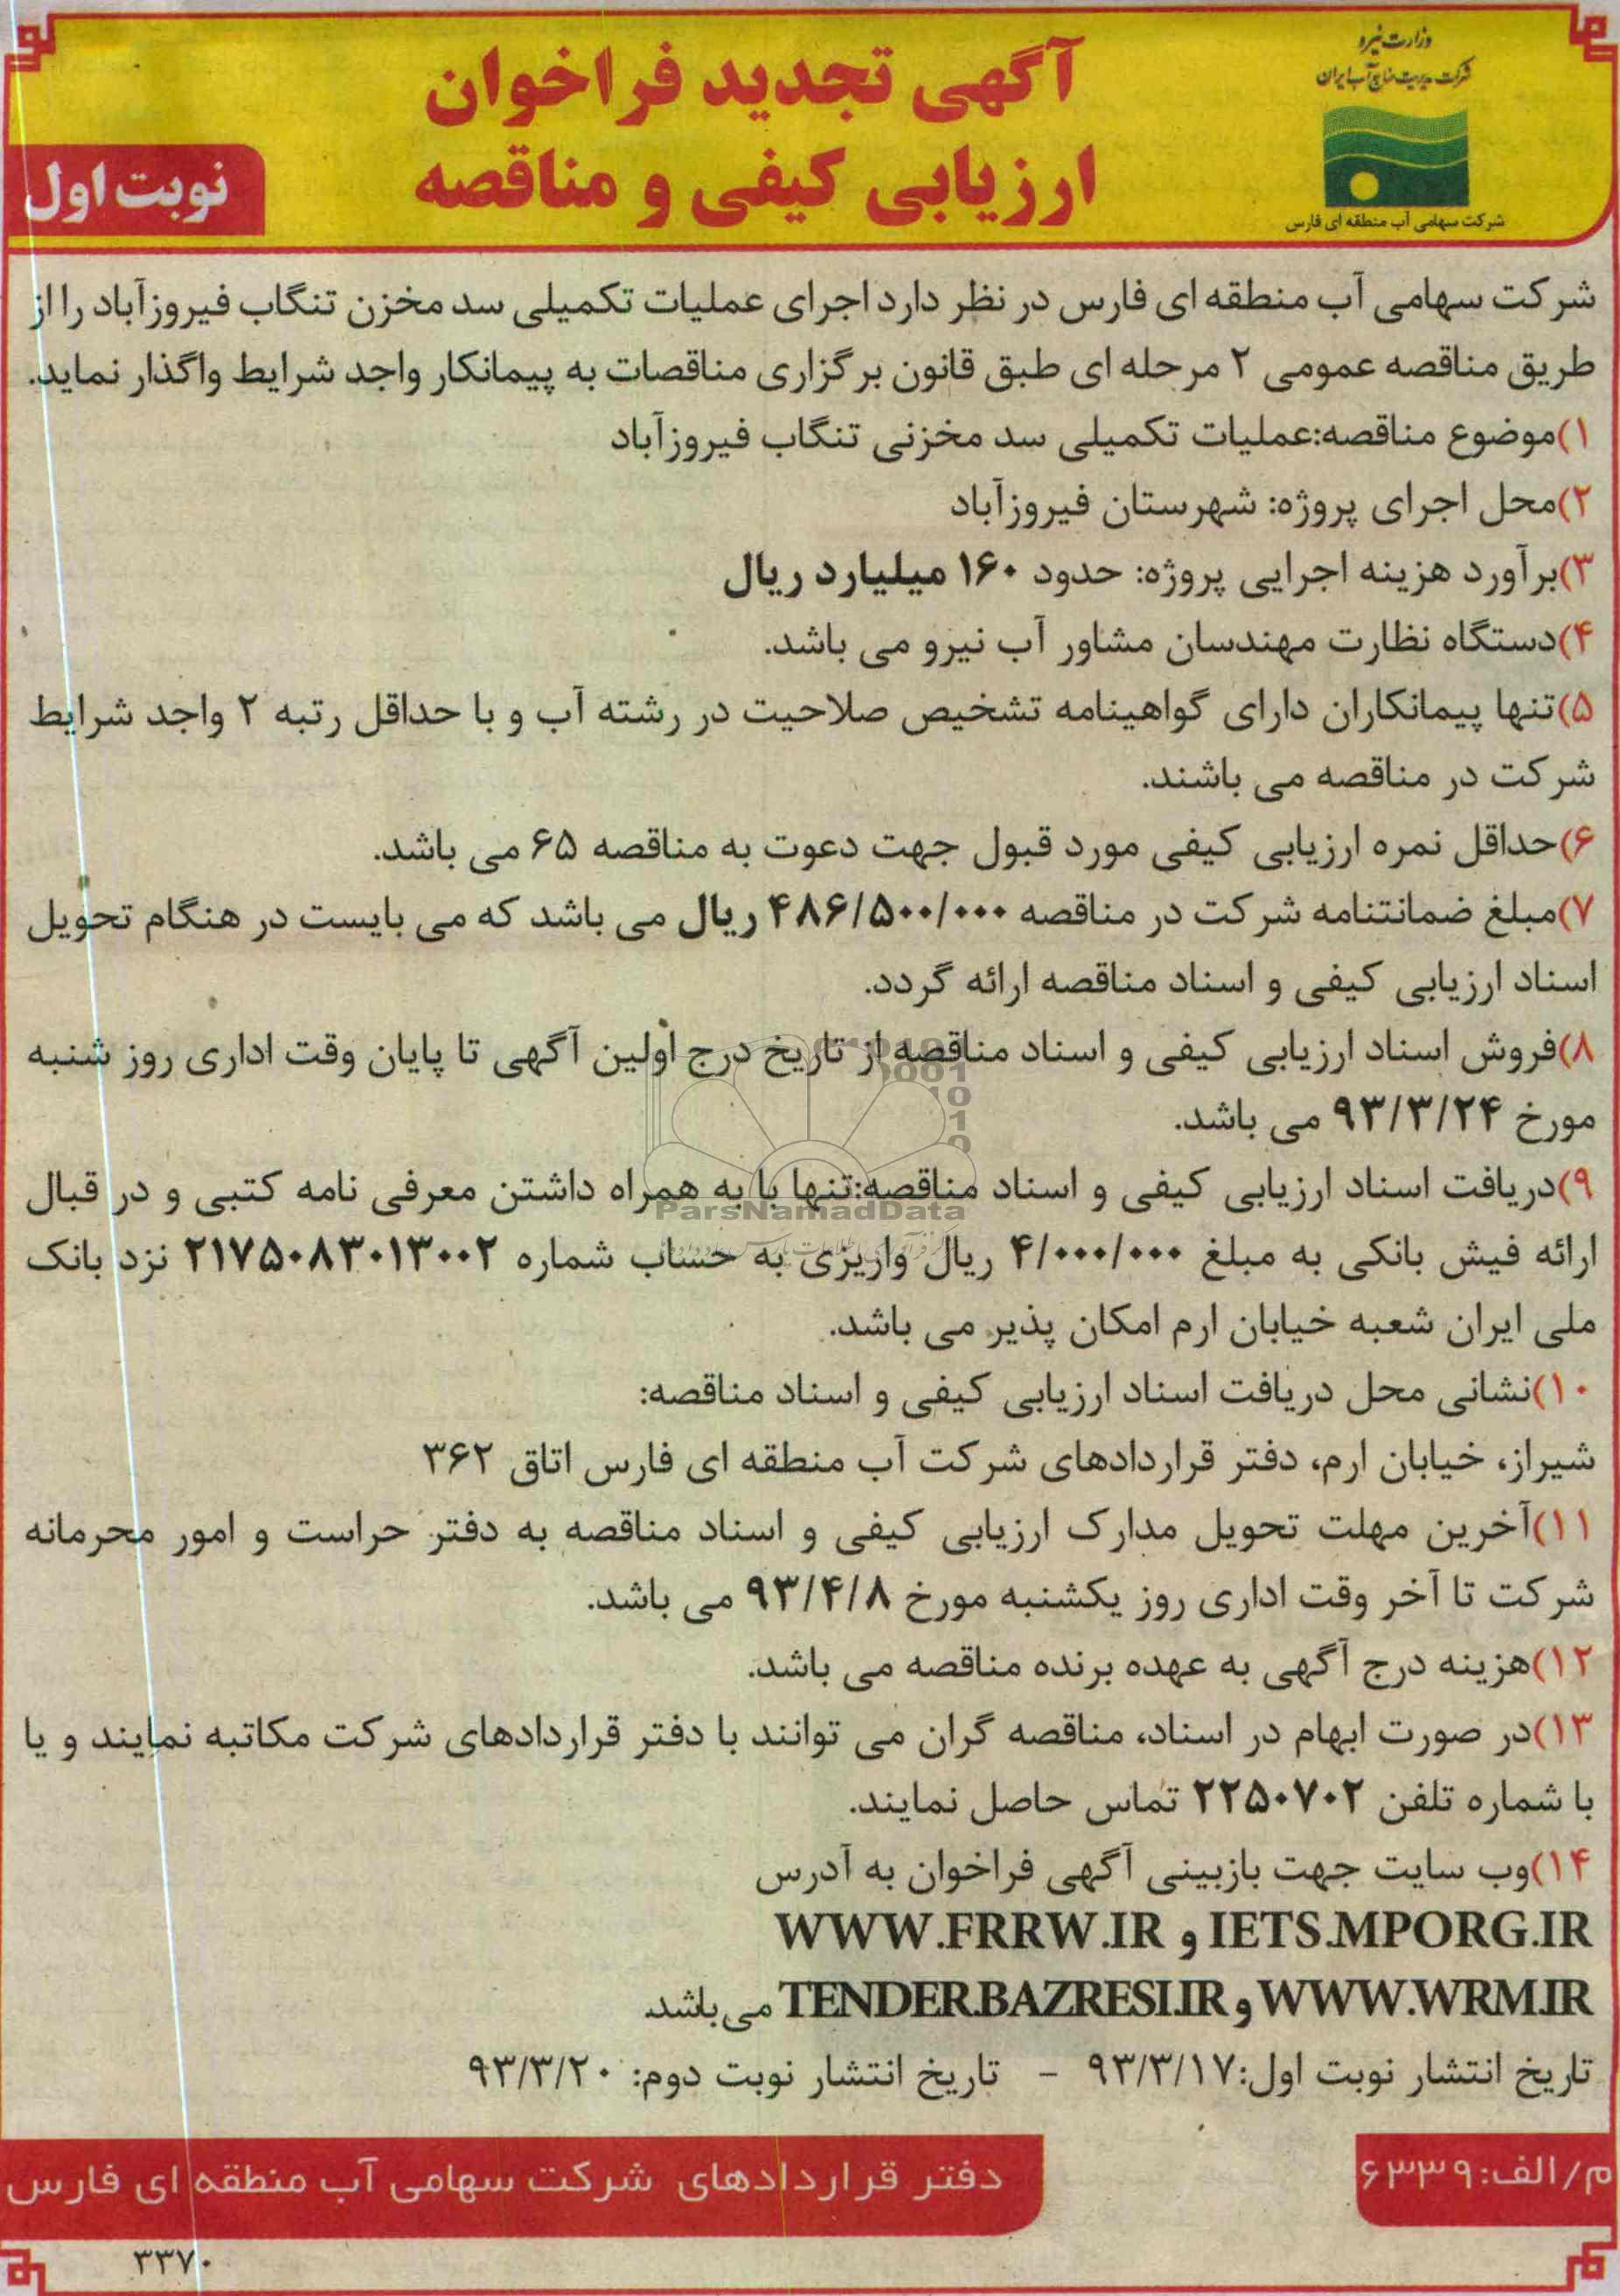 وزارت نیرو
شرکت مدیریت منابع آب ایران
شرکت سهامی آب منطقه ای فارس
آگهی تجدید فراخوان
ارزیابی کیفی و مناقصه
نوبت اول
شرکت سهامی آب منطقه ای فارس در نظر دارد اجرای عملیات تکمیلی سد مخزن تنگاب فیروزآباد را از
طریق مناقصه عمومی ۲ مرحله ای طبق قانون برگزاری مناقصات به پیمانکار واجد شرایط واگذار نماید.
۱)موضوع مناقصه:عملیات تکمیلی سد مخزنی تنگاب فیروزآباد
۲)محل اجرای پروژه: شهرستان فیروزآباد
۳)برآورد هزینه اجرایی پروژه: حدود ۱۶۰ میلیارد ریال
۴)دستگاه نظارت مهندسان مشاور آب نیرو می باشد.
۵)تنها پیمانکاران دارای گواهینامه تشخیص صلاحیت در رشته آب و با حداقل رتبه ۲ واجد شرایط
شرکت در مناقصه می باشند.
۶)حداقل نمره ارزیابی کیفی مورد قبول جهت دعوت به مناقصه ۶۵ می باشد.
۷)مبلغ ضمانتنامه شرکت در مناقصه ۴۸۶/۵۰۰/۰۰۰ ریال می باشد که می بایست در هنگام تحویل
اسناد ارزیابی کیفی و اسناد مناقصه ارائه گردد.
۸)فروش اسناد ارزیابی کیفی و اسناد مناقصه از تاریخ درج اولین آگهی تا پایان وقت اداری روز شنبه
مورخ ۹۳/۳/۲۴ می باشد.
۹)دریافت اسناد ارزیابی کیفی و اسناد مناقصه:تنها با به همراه داشتن معرفی نامه کتبی و در قبال
ParsNamadData
ارائه فیش بانکی به مبلغ ۴/۰۰۰/۰۰۰ ریال واریزی به حساب شماره ۲۱۷۵۰۸۳۰۱۳۰۰۲ نزد بانک
ملی ایران شعبه خیابان ارم امکان پذیر می باشد.
۱۰)نشانی محل دریافت اسناد ارزیابی کیفی و اسناد مناقصه:
شیراز، خیابان ارم، دفتر قراردادهای شرکت آب منطقه ای فارس اتاق ۳۶۲
۱۱)آخرین مهلت تحویل مدارک ارزیابی کیفی و اسناد مناقصه به دفتر حراست و امور محرمانه
شرکت تا آخر وقت اداری روز یکشنبه مورخ ۹۳/۴/۸ می باشد.
۱۲)هزینه درج آگهی به عهده برنده مناقصه می باشد.
۱۳)در صورت ابهام در اسناد، مناقصه گران می توانند با دفتر قراردادهای شرکت مکاتبه نمایند و یا
با شماره تلفن ۲۲۵۰۷۰۲ تماس حاصل نمایند.
۱۴)وب سایت جهت بازبینی آگهی فراخوان به آدرس
IETS.MPORG.IR و WWW.FRRW.IR
WWW.WRM.IR و TENDER.BAZRESI.IR می باشد
تاریخ انتشار نوبت اول:۹۳/۳/۱۷ - تاریخ انتشار نوبت دوم: ۹۳/۳/۲۰
م/الف:۶۳۳۹
دفتر قراردادهای شرکت سهامی آب منطقه ای فارس
۳۳۷۰